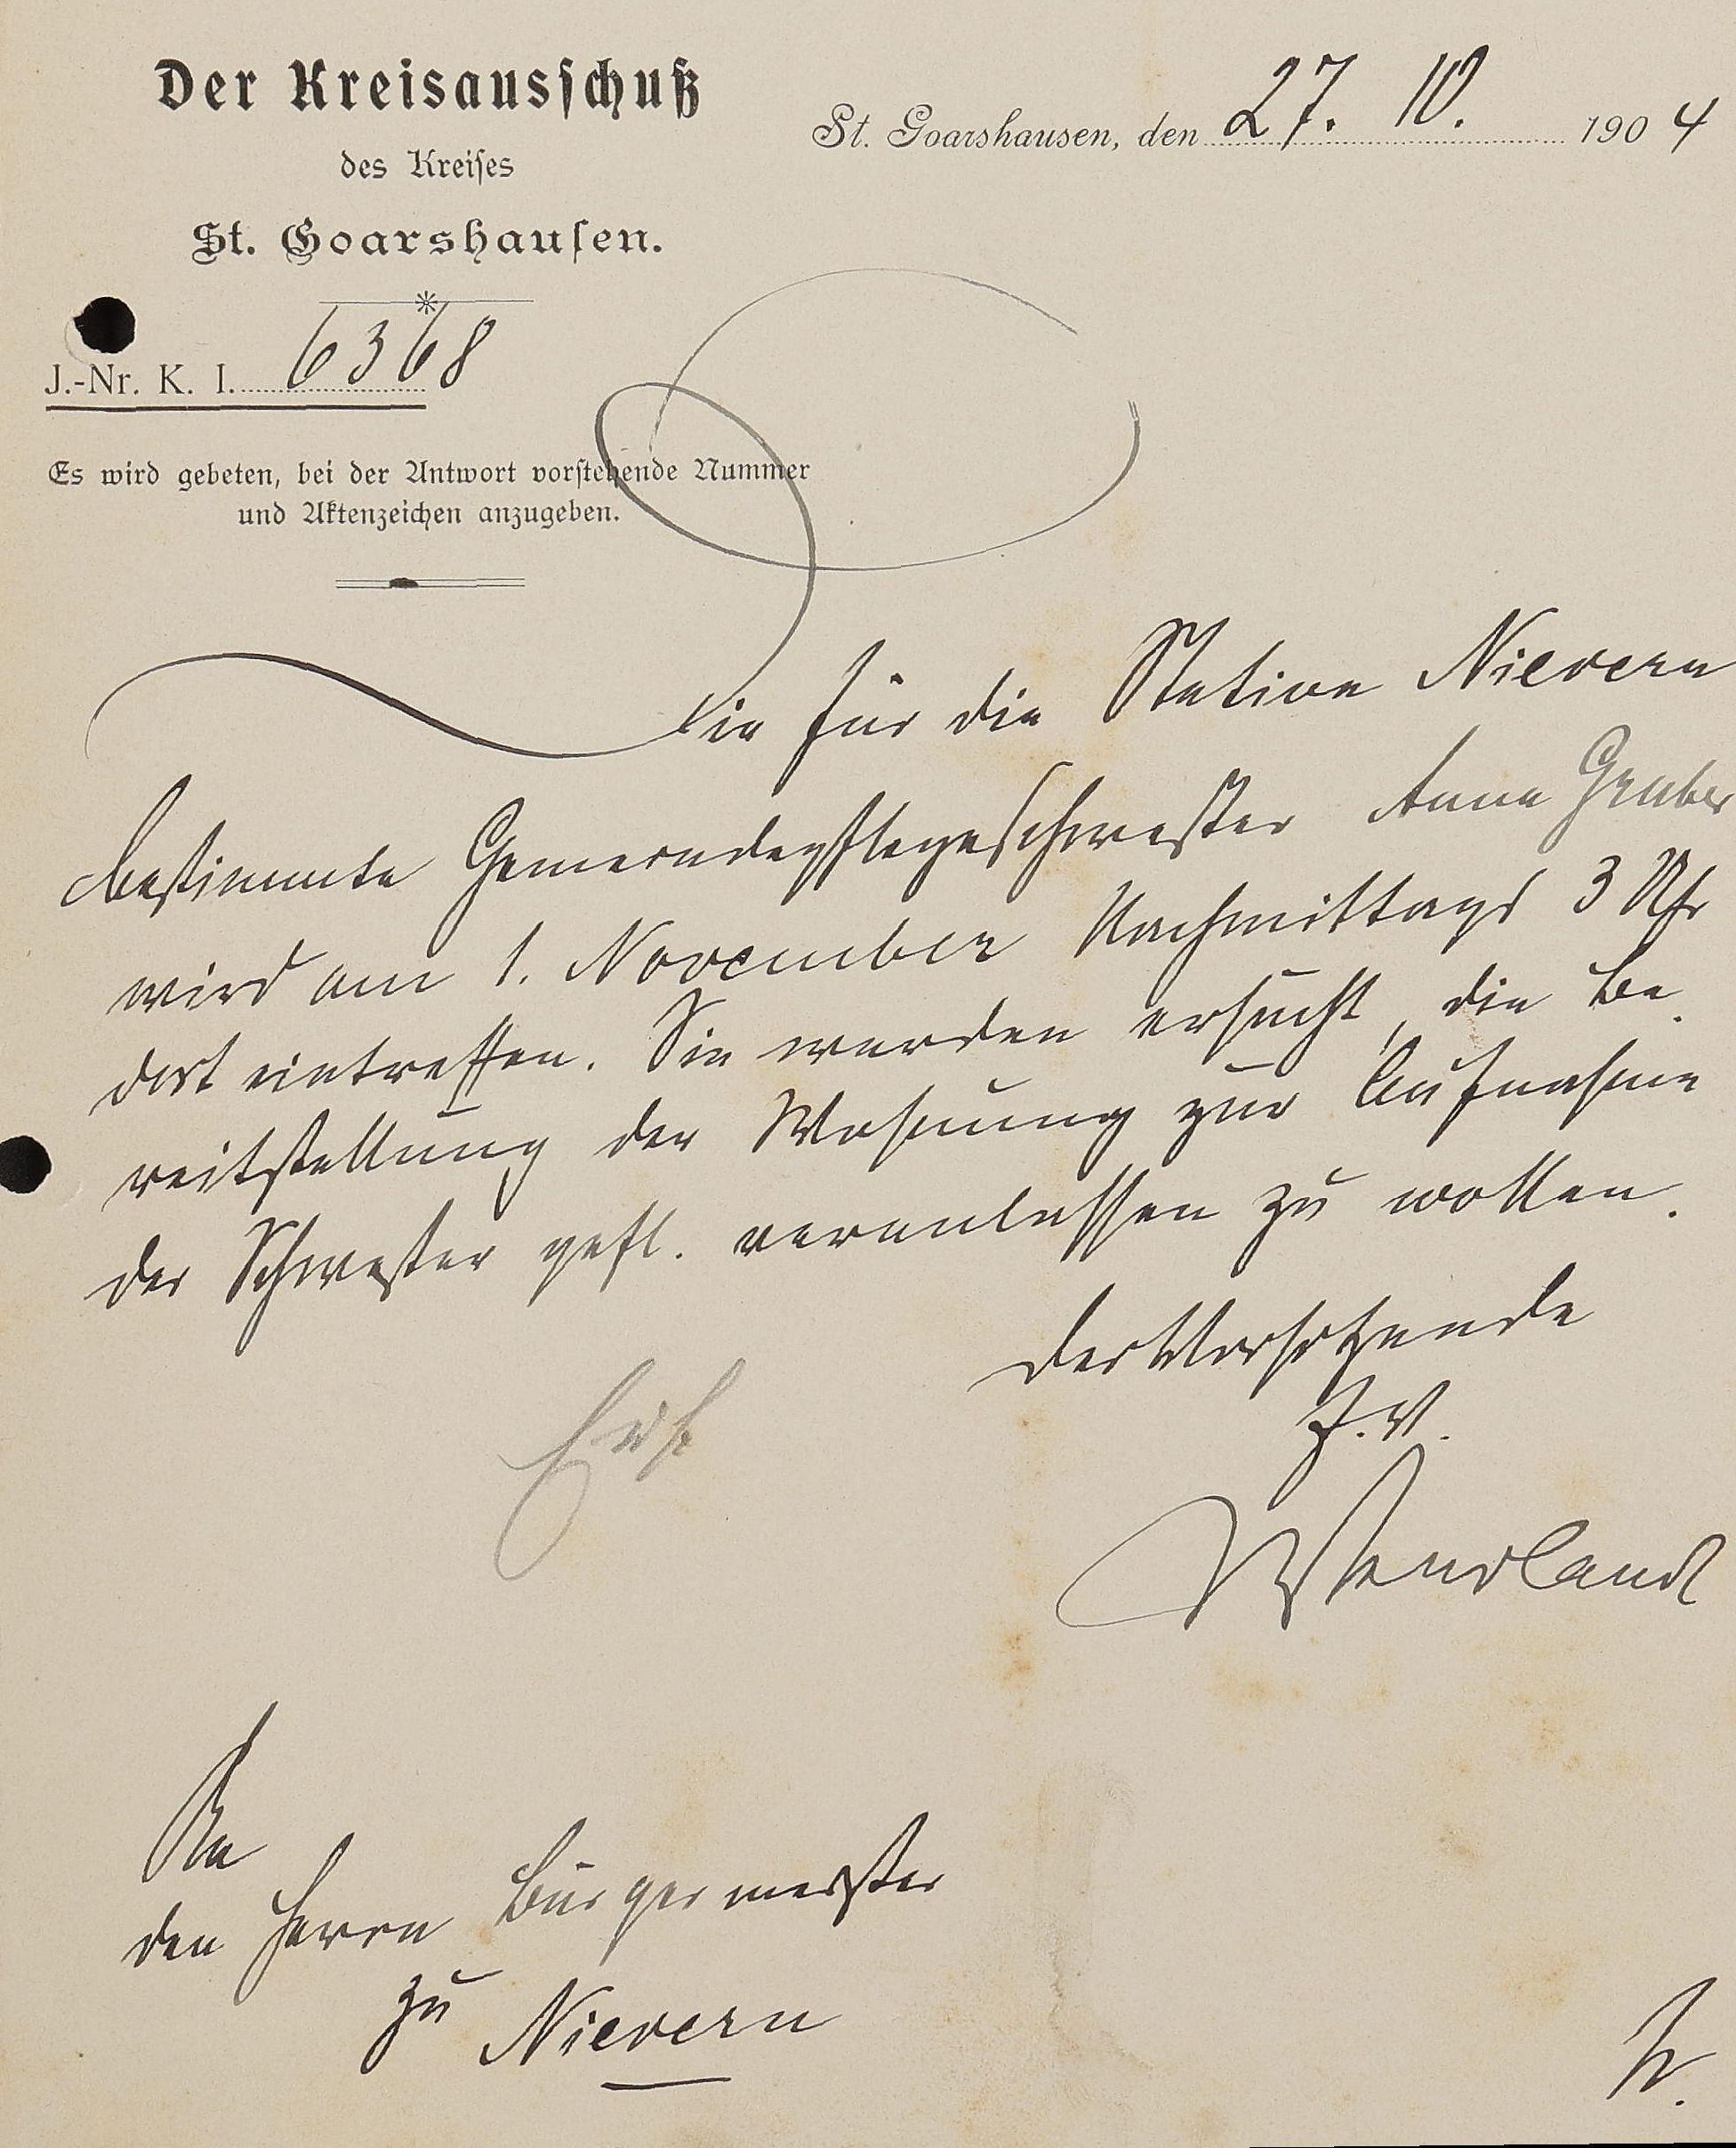 Der Kreisausschuß
des Kreises
St. Goarshausen.
St. Goarshausen, den 27. 10. 1904
J.-Nr. K. I. 6368
Es wird gebeten, bei der Antwort vorstehende Nummer
und Aktenzeichen anzugeben.
Die für die Station Nievern
bestimmte Gemeindepflegeschwester Anna Gruber
wird am 1. November Nachmittags 3 Uhr
dort eintreffen. Sie werden ersucht, die Be-
reitstellung der Wohnung zur Aufnahme
der Schwester gefl. veranlassen zu wollen.
Der Vorsitzende
J. V.
An
den Herrn Bürgermeister
zu Nievern